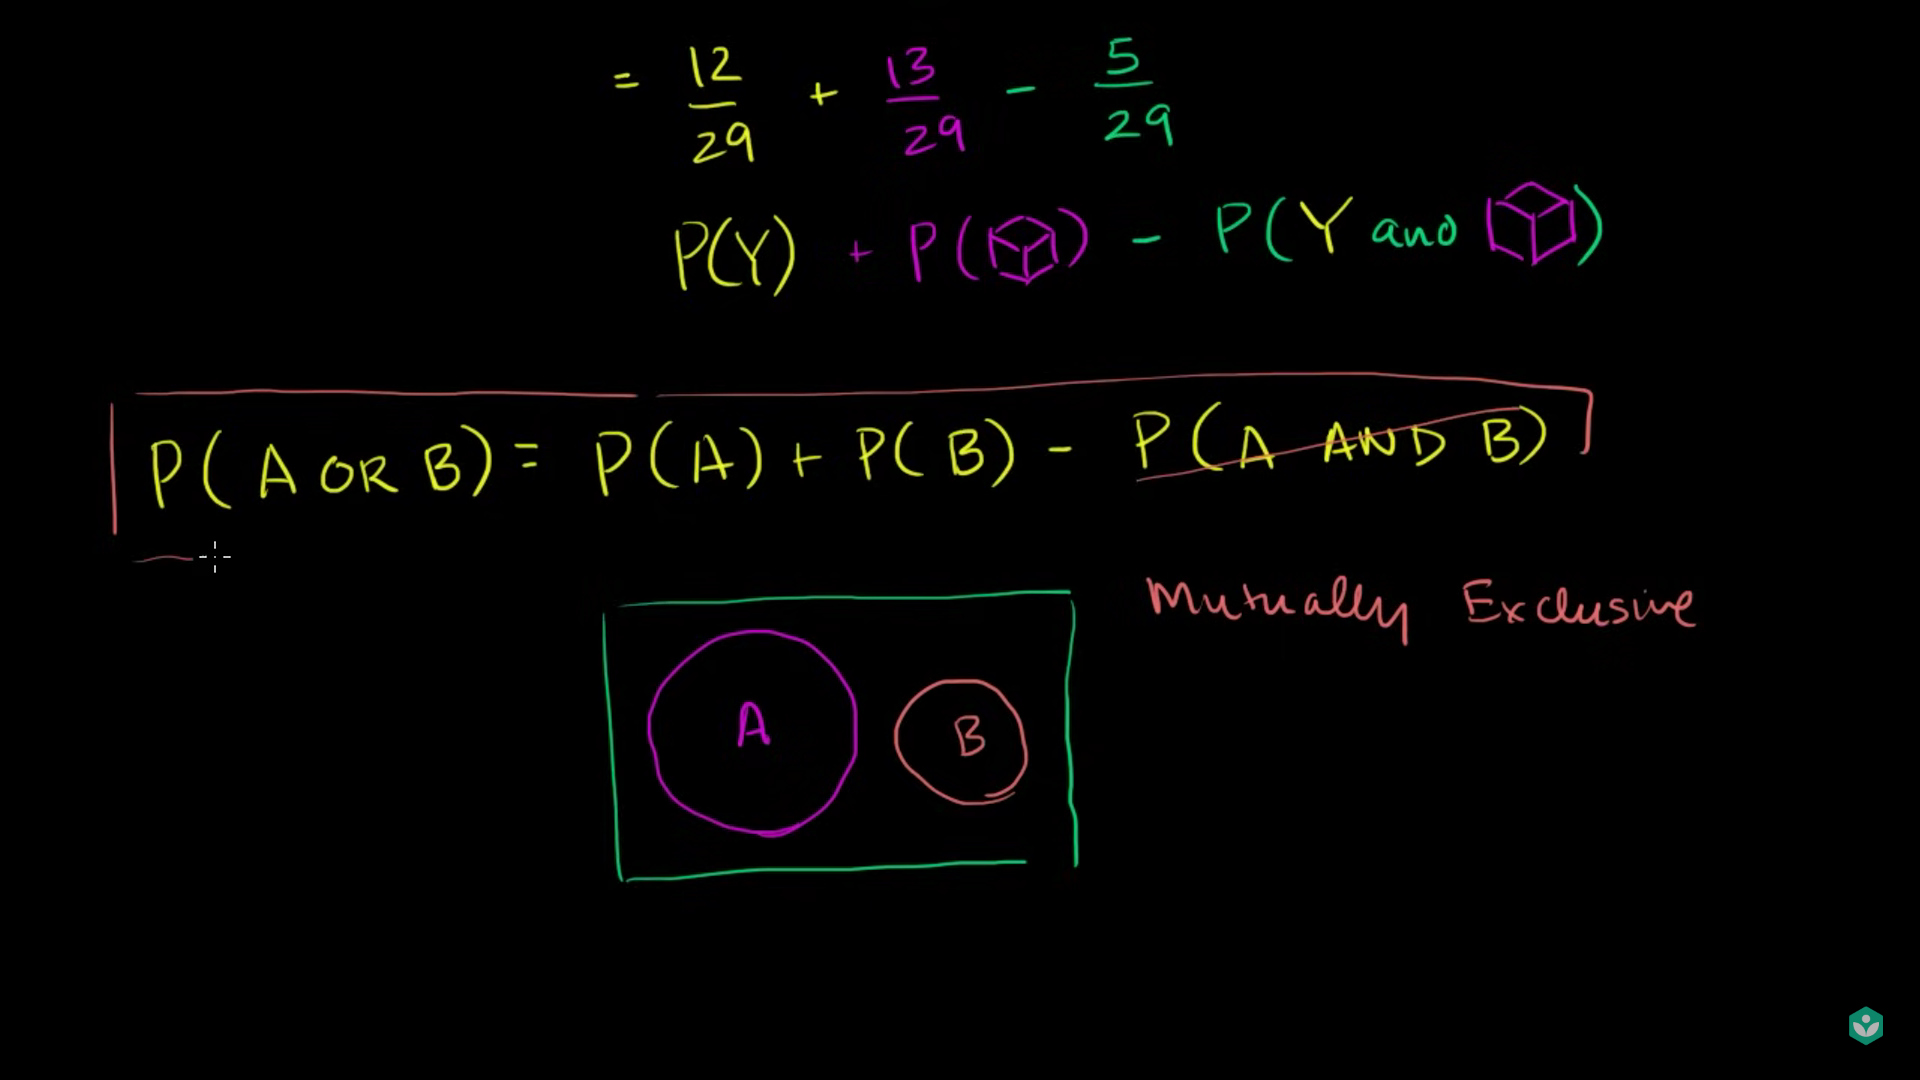 = 12/29 + 13/29 - 5/29
P(Y) + P( ) - P(Y and )
P(A OR B) = P(A) + P(B) - P(A AND B)
Mutually Exclusive
A B